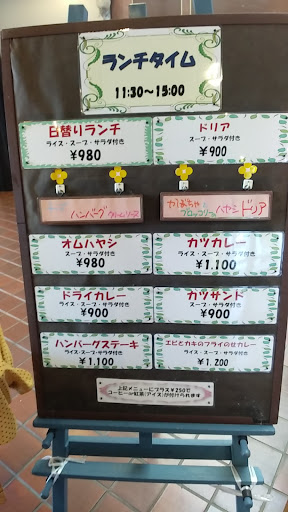 ランチタイム
11:30～15:00
日替りランチ
ライス・スープ・サラダ付き
¥980
ドリア
スープ・サラダ付き
¥900
ハンバーグ
かぼちゃ
ブロッコリーの
ハヤシドリア
オムハヤシ
スープ・サラダ付き
¥980
カツカレー
スープ・サラダ付き
¥1,100
ドライカレー
スープ・サラダ付き
¥900
カツサンド
スープ・サラダ付き
¥900
ハンバーグステーキ
ライス・スープ・サラダ付き
¥1,100
エビとカキのフライのせカレー
ライス・スープ・サラダ付き
¥1,200
上記メニューにプラス¥250で
コーヒー・紅茶(アイス)が付けられます